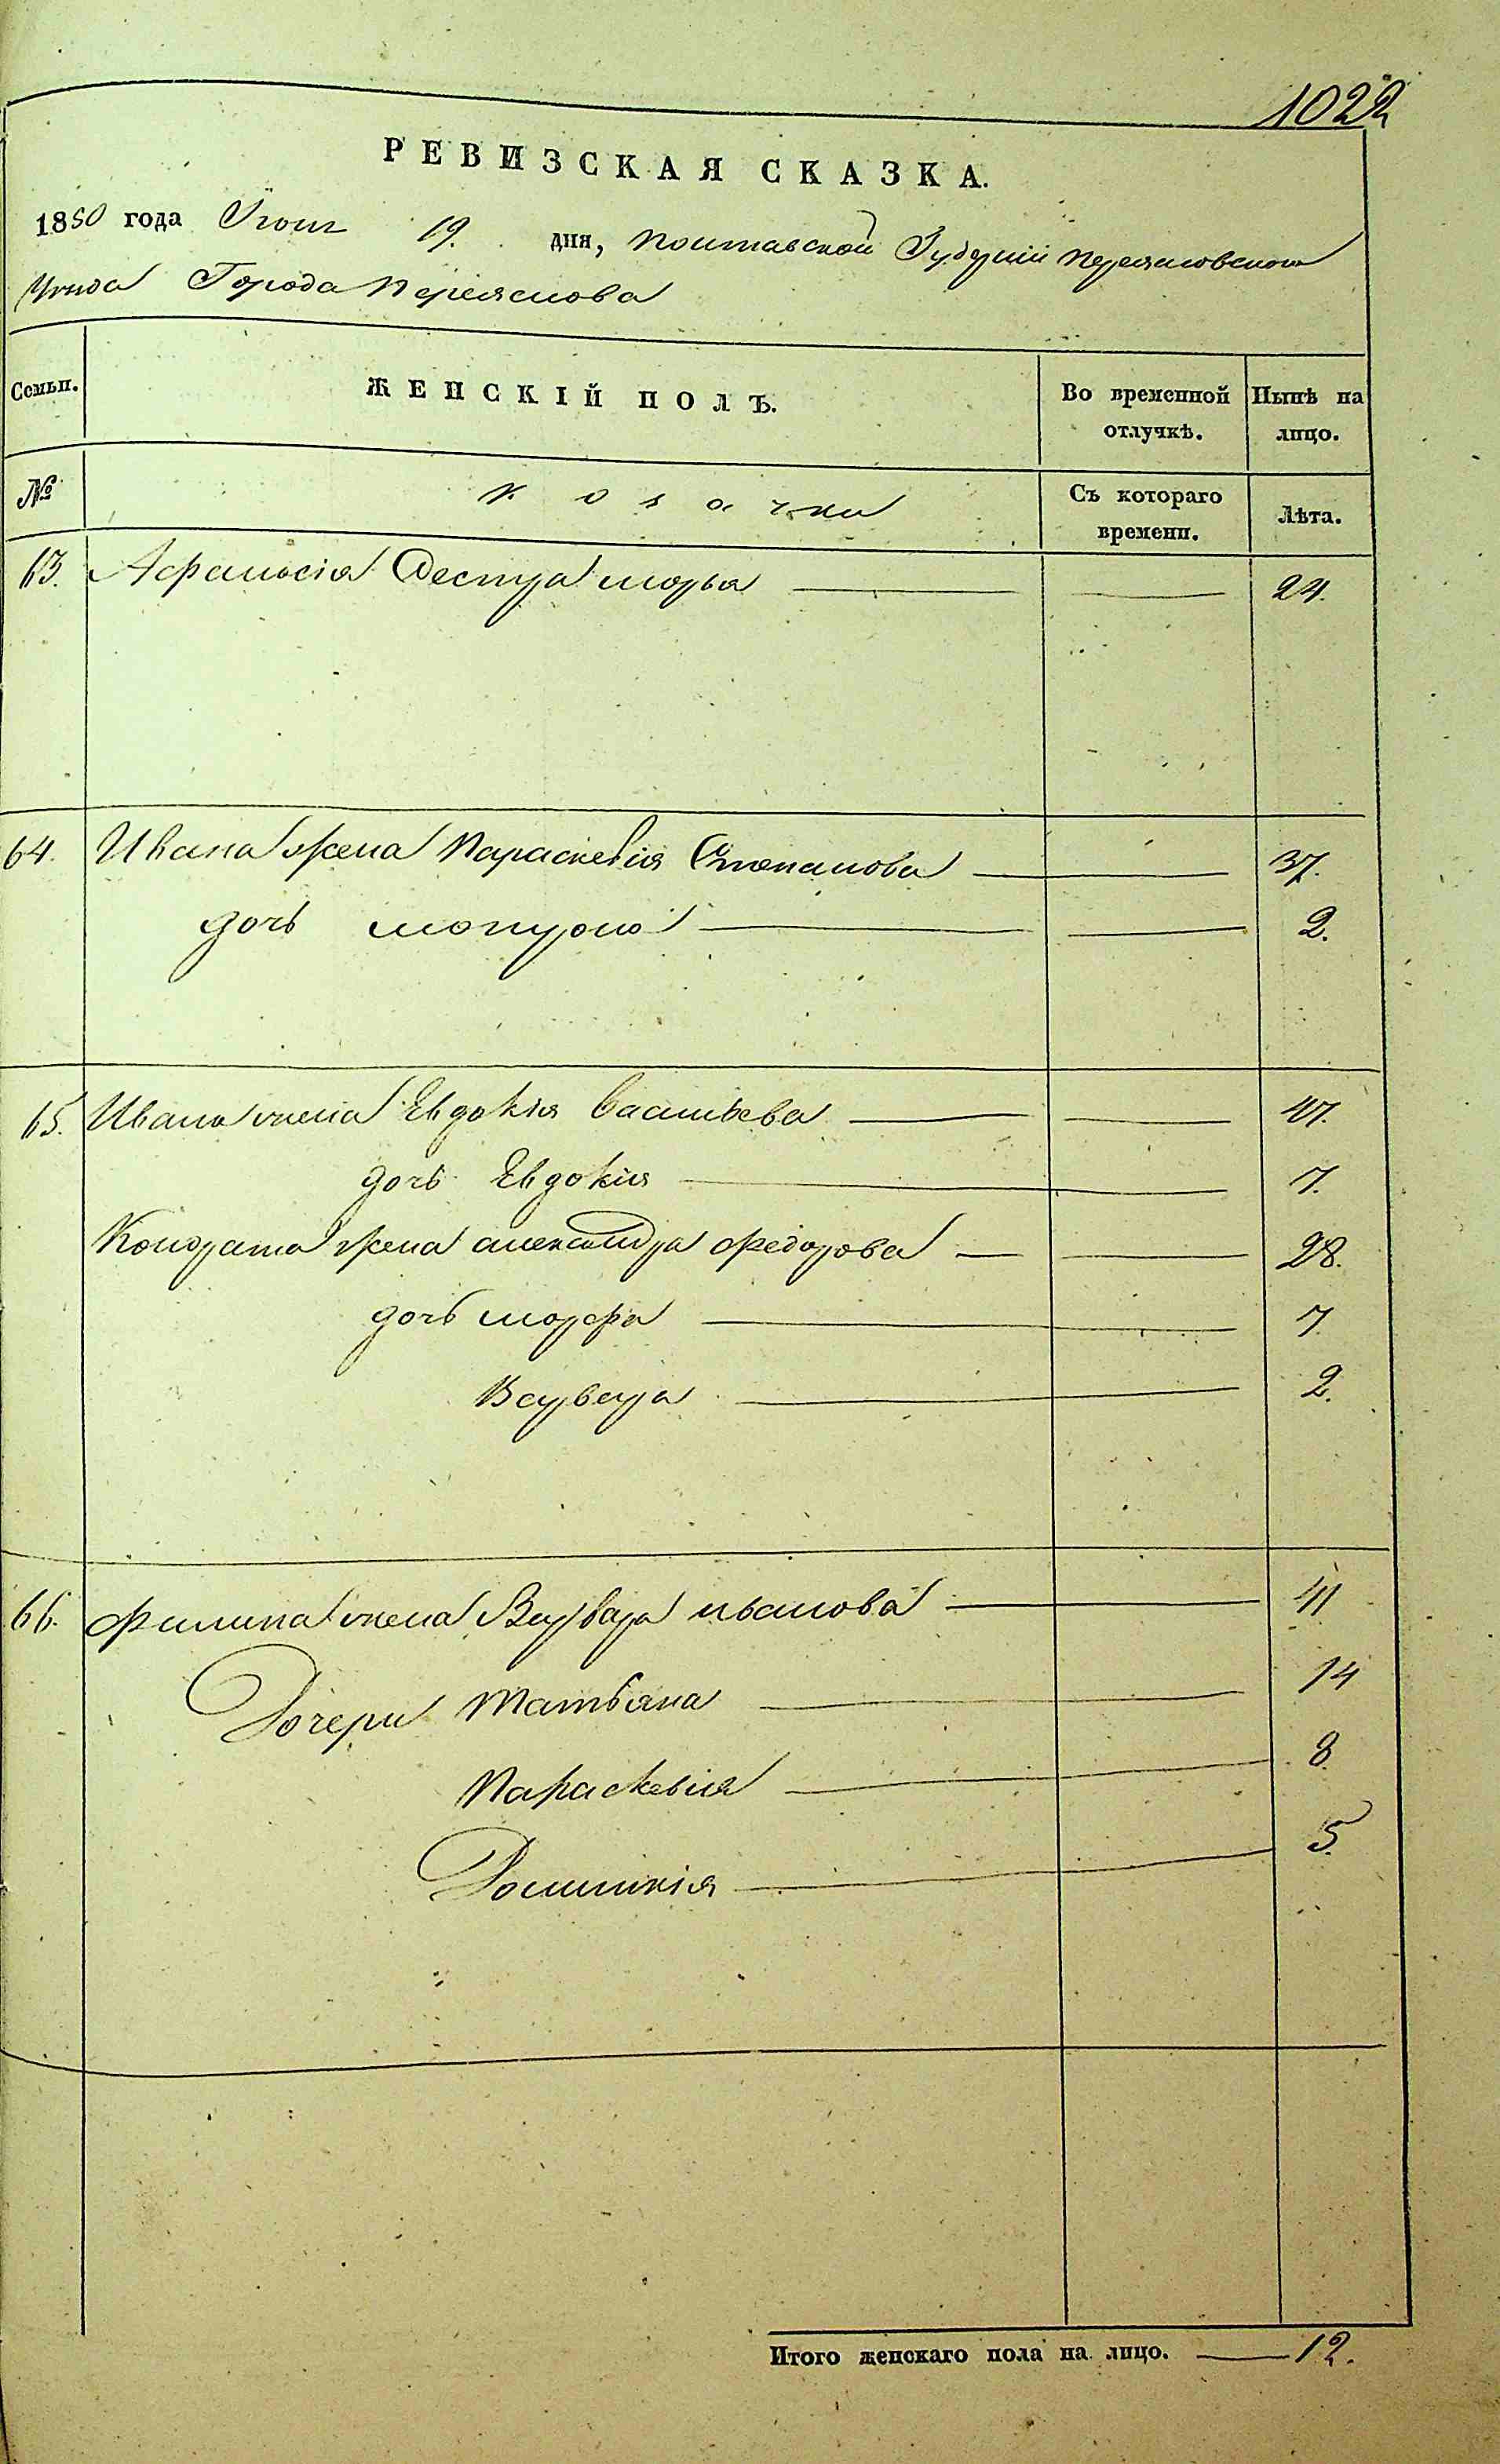 1022
РЕВИЗСКАЯ СКАЗКА.
1850 года Іюня 19. дня, Полтавской Губерніи Переяславского
Уезда Города Переяслова
Семьи. ЖЕНСКІЙ ПОЛЪ. Во временной отлучкѣ. Нынѣ на лицо.
№ Козачки Съ котораго времени. Лѣта.
63. Афанасія Сестра Марья 24.
64. Ивана жена Параскевія Степанова 37.
дочь 2.
65. Ивана жена Евдокія Васильева 47.
дочь Евдокія 7.
Кондрата жена александра федорова 28.
дочь марфа 7.
Варвара 2.
66. филипа жена Варвара иванова 41
Дочери Татьяна 14
Параскевія 8.
Домникія 5.
Итого женскаго пола на лицо. 12.